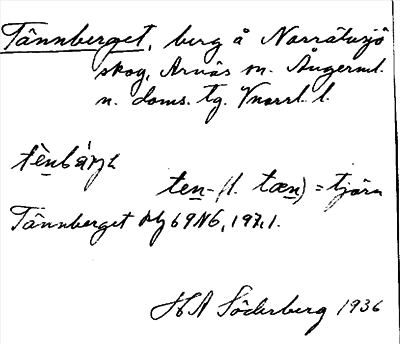 Tännberget, berg å Norrätansjö
skog, Arnäs sn. Ångerml.
n. doms. tg. Vnorrl. l.
tènbárjə
ten- (l. tæn) = tjära
Tännberget Af 69 N6, 197, 1.
H A Söderberg 1936